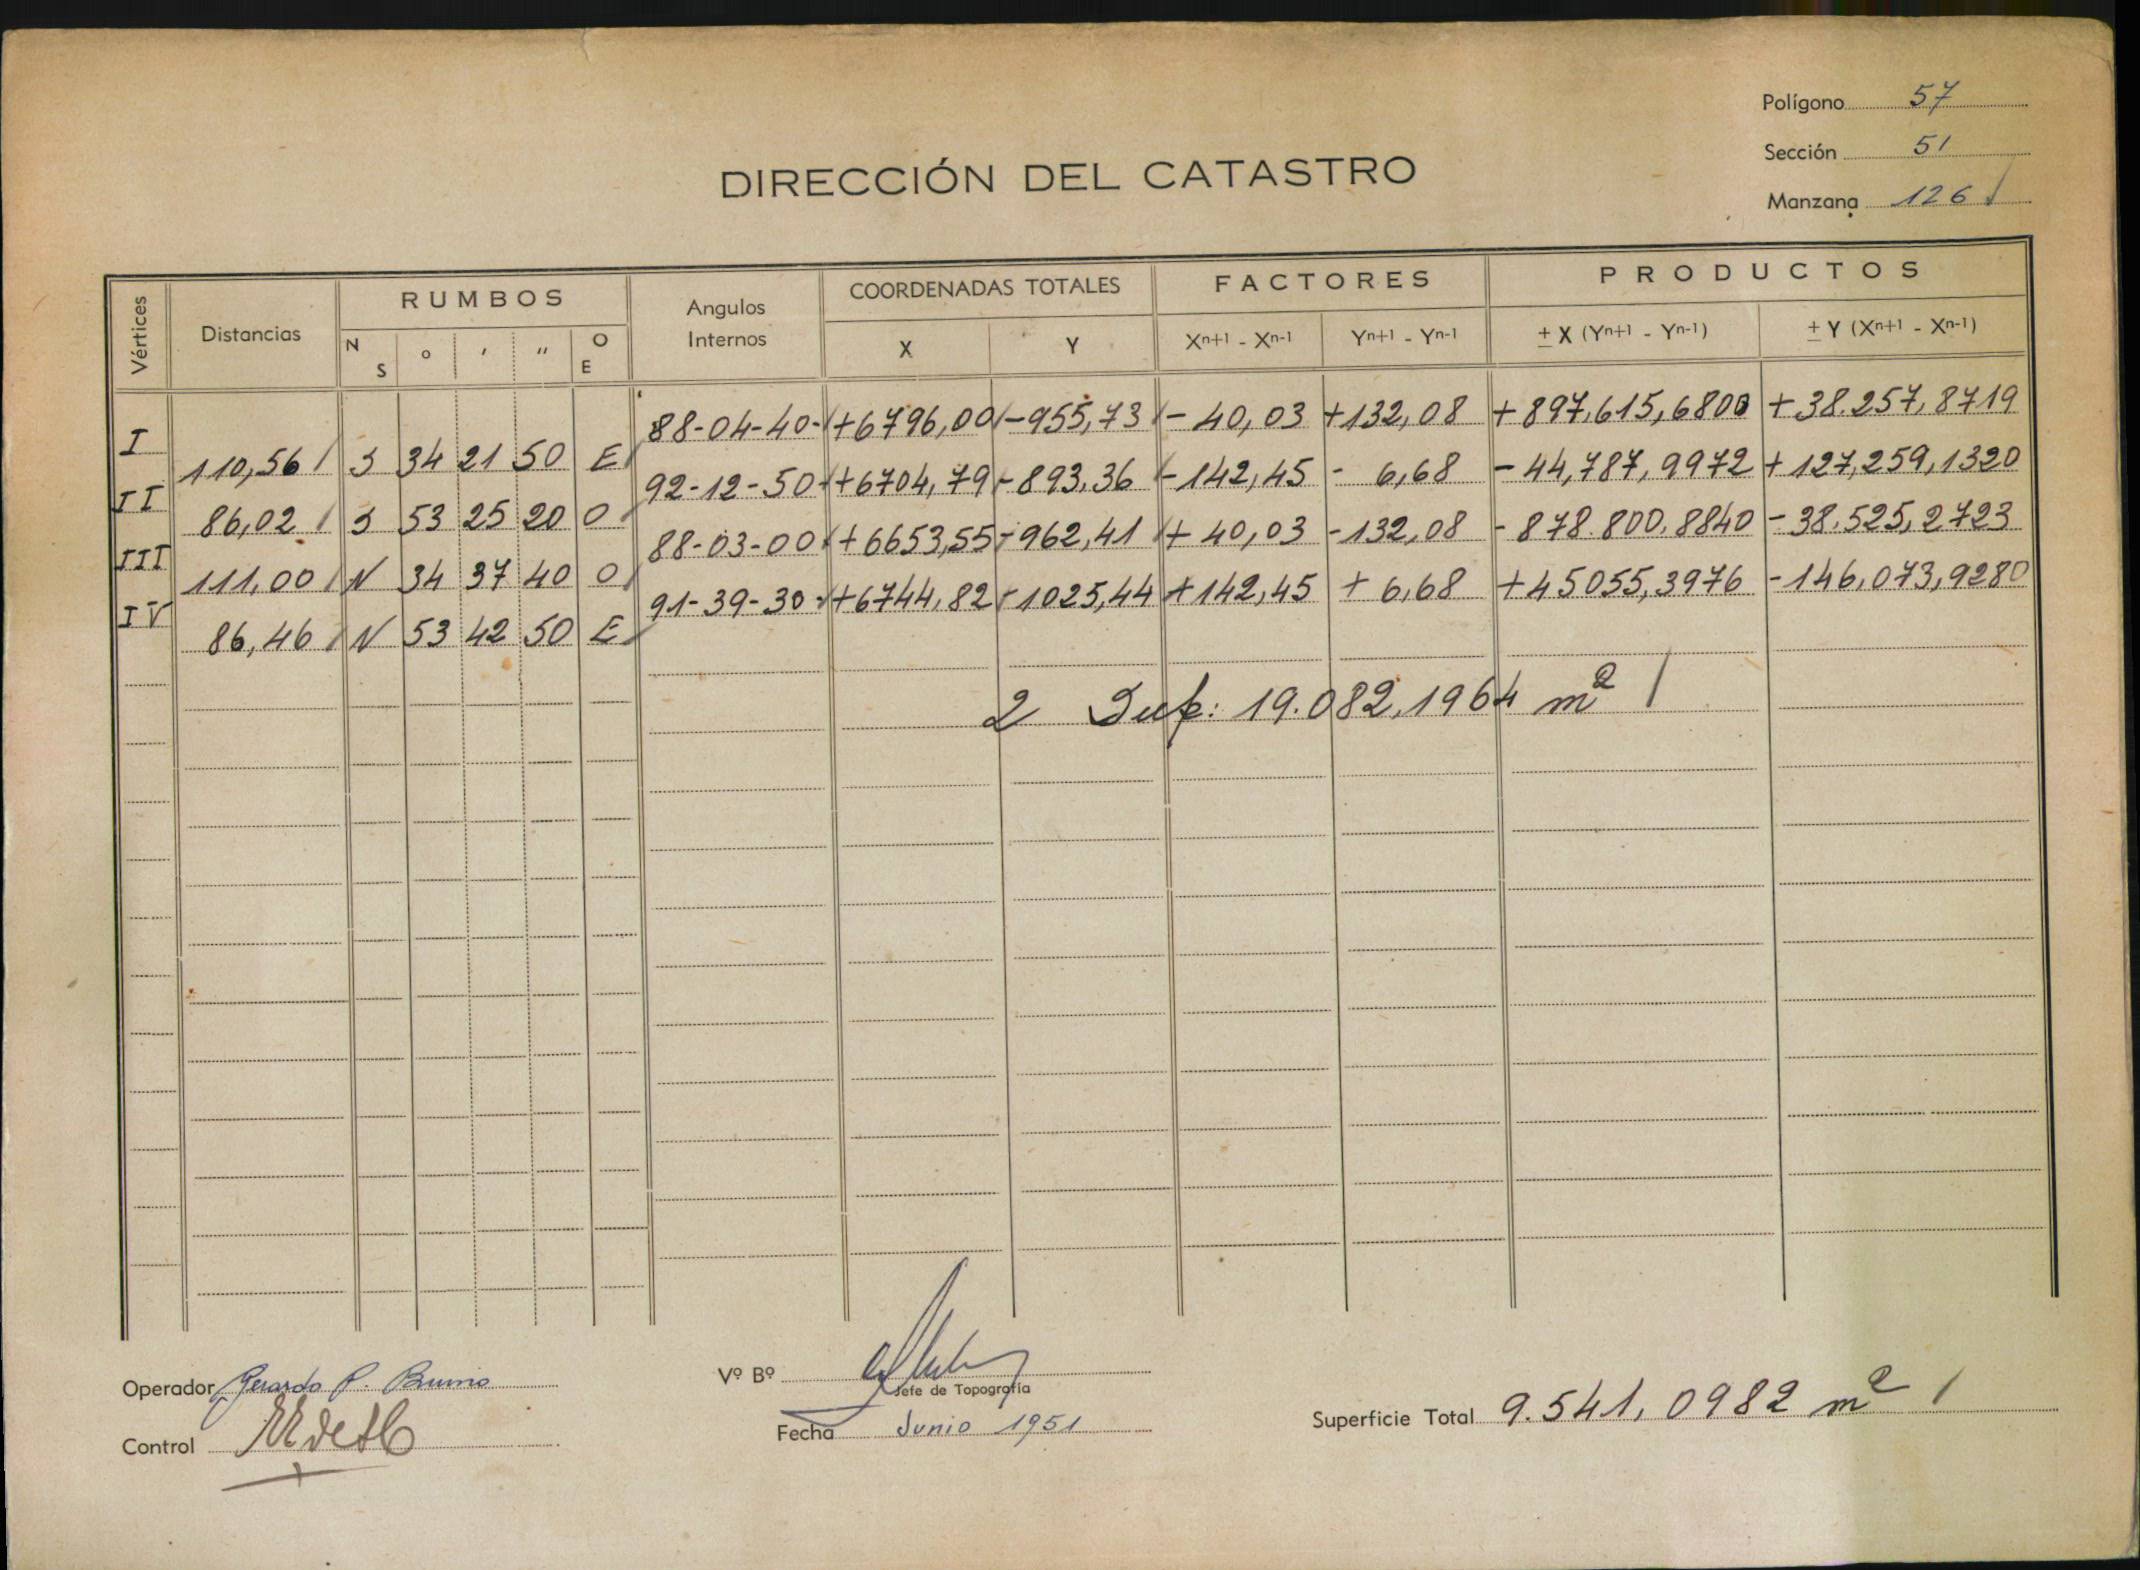 Polígono 57
Sección 51
Manzana 126
DIRECCIÓN DEL CATASTRO
Vértices Distancias RUMBOS Angulos Internos COORDENADAS TOTALES FACTORES PRODUCTOS
N S ° ' " O E X Y Xⁿ⁺¹ - Xⁿ⁻¹ Yⁿ⁺¹ - Yⁿ⁻¹ ± X (Yⁿ⁺¹ - Yⁿ⁻¹) ± Y (Xⁿ⁺¹ - Xⁿ⁻¹)
I 88-04-40 +6796,00 -955,73 -40,03 +132,08 +897,615,6800 +38.257,8719
110,56 S 34 21 50 E
II 92-12-50 +6704,79 -893,36 -142,45 -6,68 -44,787,9972 +127,259,1320
86,02 S 53 25 20 O
III 88-03-00 +6653,55 -962,41 +40,03 -132,08 -878.800,8840 -38.525,2723
111,00 N 34 37 40 O
IV 91-39-30 +6744,82 -1025,44 +142,45 +6,68 +45055,3976 -146,073,9280
86,46 N 53 42 50 E
2 Sup: 19.082,1964 m²
Operador Gerardo P. Bruno
Control
Vº Bº
Jefe de Topografía
Fecha Junio 1951
Superficie Total 9.541,0982 m²